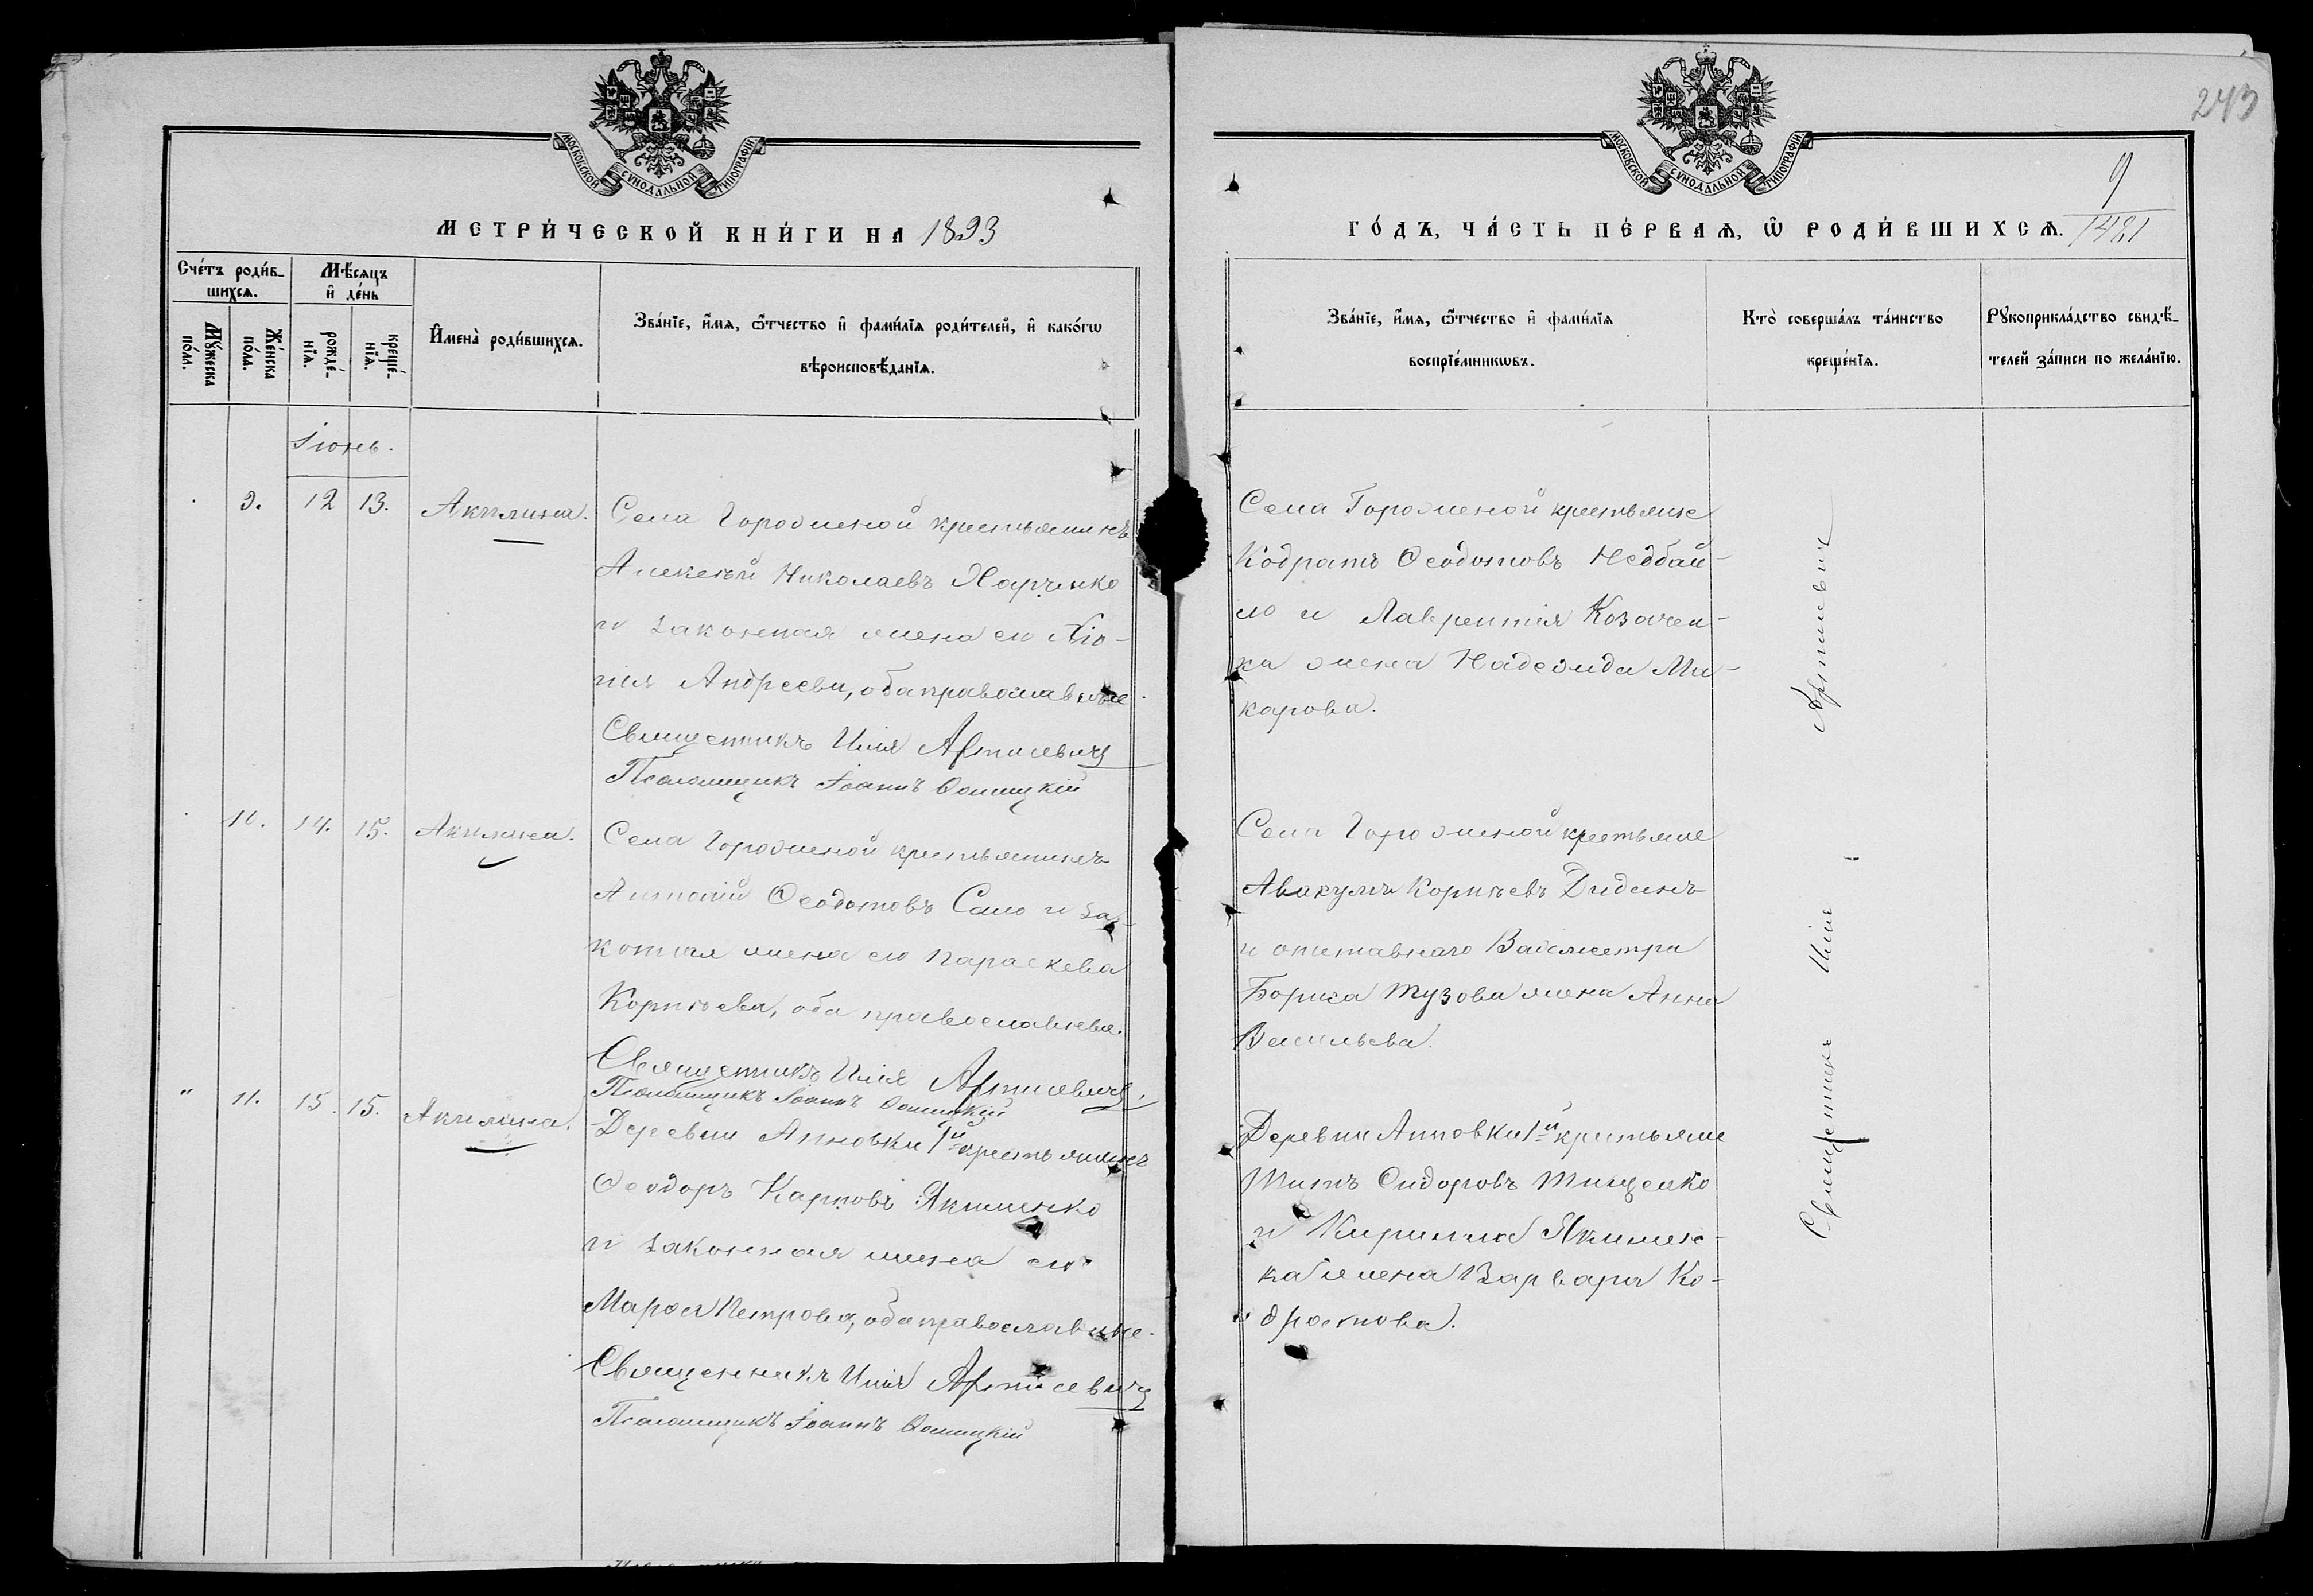 243
МОСКОВСКОЙ СѴНОДАЛЬНОЙ ТИПОГРАФІИ
МОСКОВСКОЙ СѴНОДАЛЬНОЙ ТИПОГРАФІИ
МЕТРИ́ЧЕСКОЙ КНИ́ГИ НА 1893
ГО́ДЪ, ЧА́СТЬ ПЕ́РВАѦ, Ѿ РОДИ́ВШИХСѦ.
9
1481
Сче́тъ роди́в-
шихсѧ.
Мѣ́сяцъ
и҆ де́нь
Мꙋ́жеска
по́ла.
Же́нска
по́ла.
рожде́-
нїѧ.
креще́-
нїѧ.
И҆мена̀ роди́вшихсѧ.
Зва́нїе, и҆́мѧ, ѻ҆́тчество и҆ фами́лїѧ роди́телей, и҆ како́гѡ
вѣроисповѣ́данїѧ.
Зва́нїе, и҆́мѧ, ѻ҆́тчество и҆ фами́лїѧ
воспрїе́мникѡвъ.
Кто̀ соверша́лъ та́инство
креще́нїѧ.
Рꙋкоприкла́дство свидѣ́-
телей за́писи по жела́нїю.
Іюнь.
9. 12 13. Акилина.
Села Городженой крестьянинъ
Алексѣй Николаевъ Харченко
и законная жена его Ксе-
нія Андреева, оба православные.
Священникъ Илія Артисевичъ
Псаломщикъ Іоаннъ
Села Городженой крестьяне
Кодратъ Ѳеодотовъ Недбай-
ло и Лаврентія Козачен-
ка жена Надежда Ма-
карова.
10. 14. 15. Акилина.
Села Городженой крестьянинъ
Антоній Ѳеодотовъ Сало и за-
конная жена его Параскева
Корнѣева, оба православные.
Священникъ Илія Артисевичъ.
Псаломщикъ Іоаннъ
Села Городженой крестьяне
Авакумъ Корнѣевъ Дидинъ
и отставнаго Вахмистра
Бориса Тузова жена Анна
Васильева.
" 11. 15. 15. Акилина.
Деревни Анновки 1й крестьянинъ
Ѳеодоръ Карповъ Якименко
и законная жена его
Марѳа Петрова, оба православные.
Священникъ Илія Артисевичъ
Псаломщикъ Іоаннъ
Деревни Анновки 1й крестьяне
Титъ Сидоровъ Тищенко
и Кирилла Якимен-
ка жена Варвара Ко-
дратова.
Священникъ Илія Артисевич